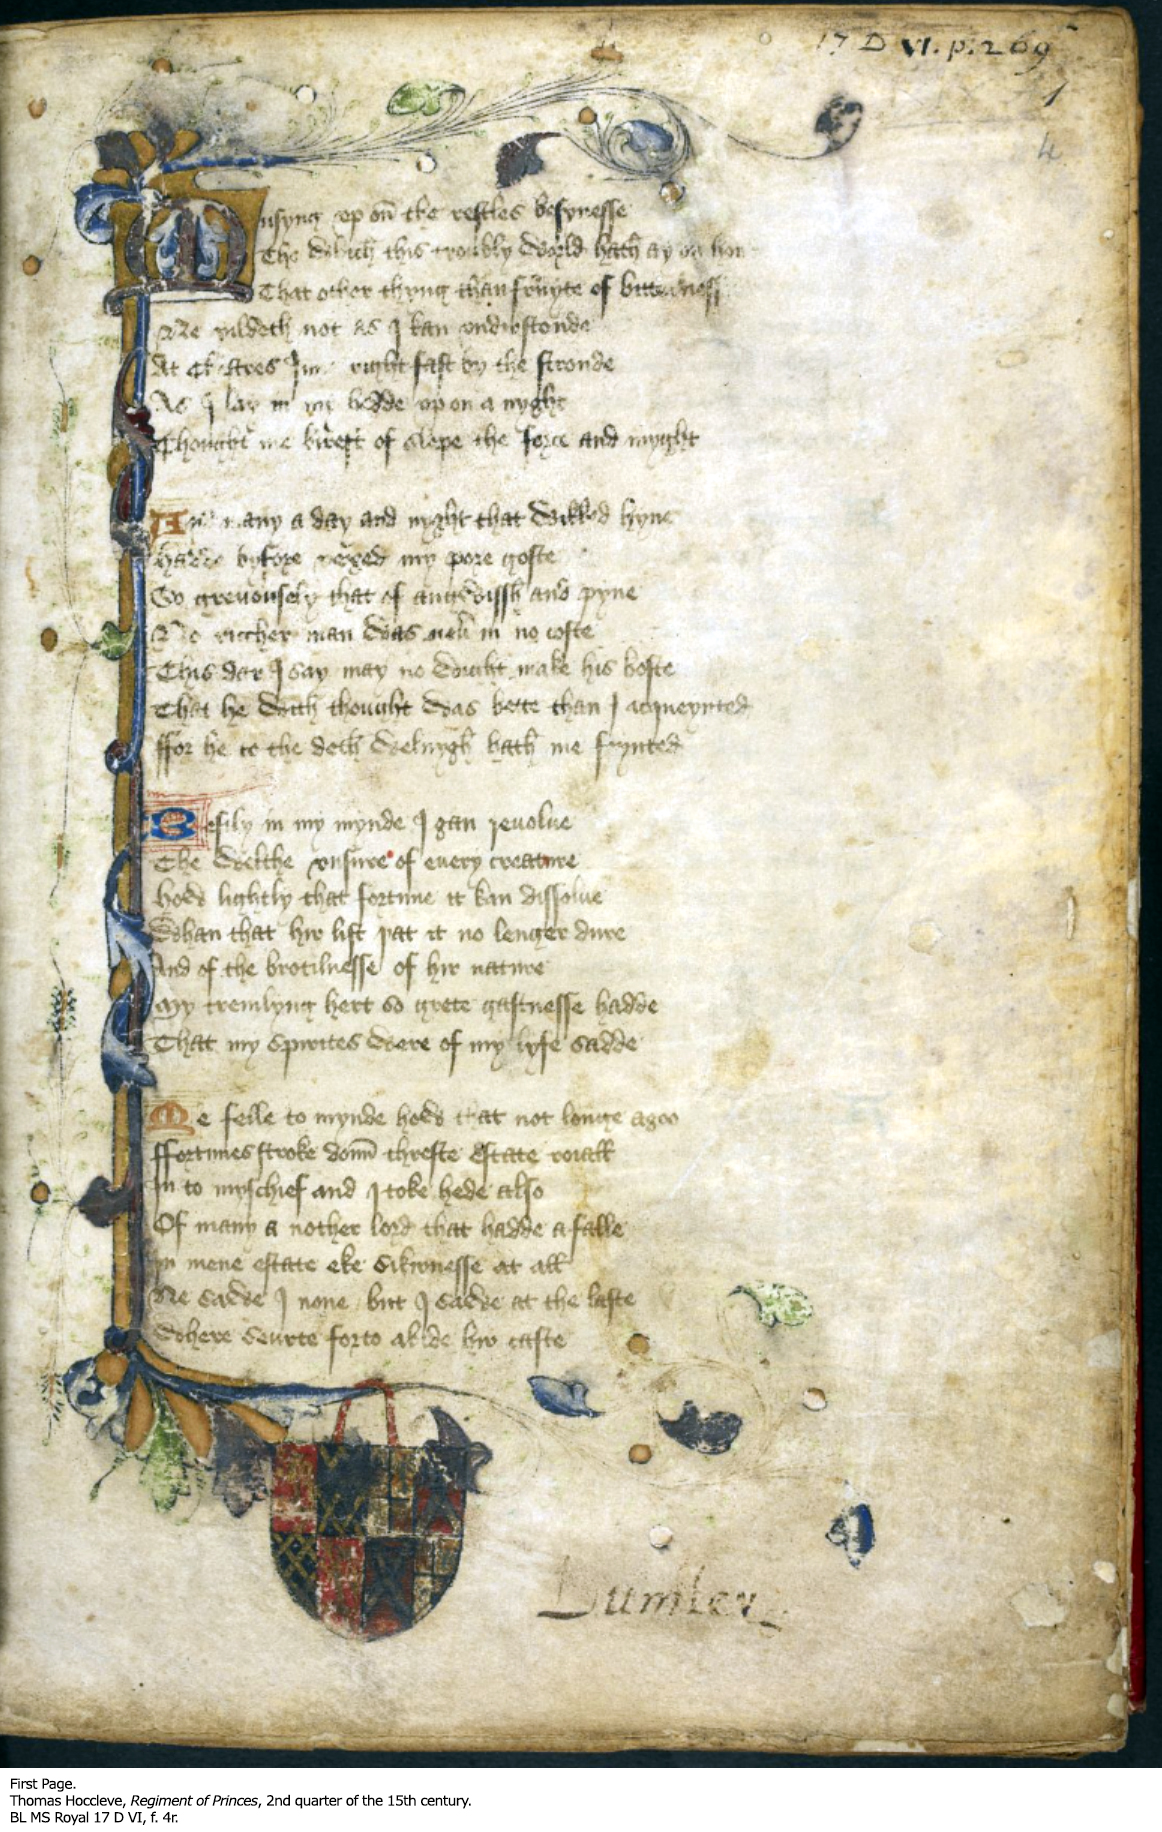 17 D VI. p. 269
1
4
Musyng vp on the restles besynesse
The which this troubly world hath ay on hon
That other thyng than fruyte of bitternesse
Ne yildeth not as I kan vndirstonde
At Chestres Inn right fast by the stronde
As I lay in my bedde vp on a nyght
Thought me bireft of slepe the force and myght
And many a day and nyght that wikked hyne
Hadde byfore vexed my pore goste
So greuously that of angwissh and pyne
No richer man was neuer in no coste
This dar I say may no wight make his boste
That he with thought was bette than I acqueynted
ffor he to the deth welnygh hath me feynted
Besily in my mynde I gan reuolue
The welthe vnsure of euery creature
How lightly that fortune it kan dissolue
Whan that hir list pat it no lenger dure
And of the brotilnesse of hir nature
My tremlyng hert so grete gastnesse hadde
That my spirites were of my lyfe sadde
Me felle to mynde how that not longe agoo
ffortunes stroke doun threste estate roiall
In to myschief and I toke hede also
Of many a nother lord that hadde a falle
In mene estate eke sikirnesse at all
Ne sawe I none but I sawe at the laste
Where seurte forto abide hir caste
Lumley
First Page.
Thomas Hoccleve, Regiment of Princes, 2nd quarter of the 15th century.
BL MS Royal 17 D VI, f. 4r.